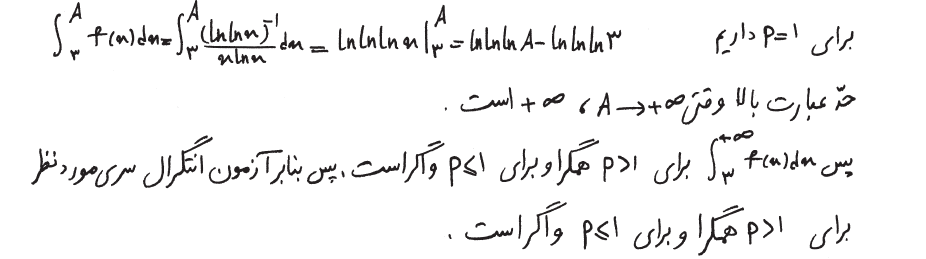 برای p=1 داریم ∫_۳^A f(x)dx = ∫_۳^A (ln ln x)^{-1} / (x ln x) dx = ln ln ln x |_۳^A = ln ln ln A - ln ln ln ۳
حدّ عبارت بالا وقتی A → +∞ ، +∞ است .
پس ∫_۳^{+∞} f(x)dx برای p>1 همگرا و برای p≤1 واگراست . پس بنابر آزمون انتگرال سری مورد نظر
برای p>1 همگرا و برای p≤1 واگراست .